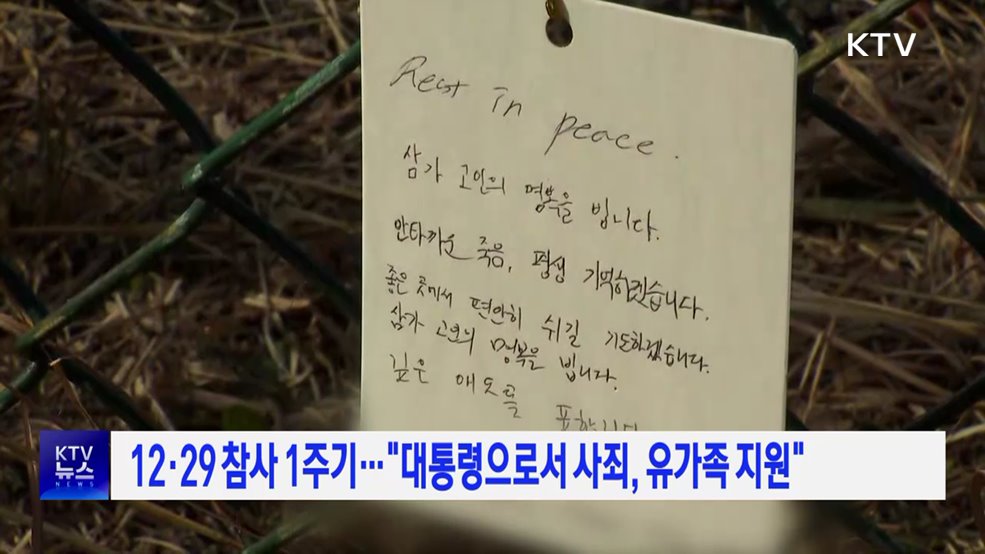 KTV
Rest in peace.
삼가 고인의 명복을 빕니다.
안타까운 죽음, 평생 기억하겠습니다.
좋은 곳에서 편안히 쉬길 기도하겠습니다.
삼가 고인의 명복을 빕니다.
깊은 애도를 표합니다
KTV
뉴스
NEWS
12·29 참사 1주기…"대통령으로서 사죄, 유가족 지원"